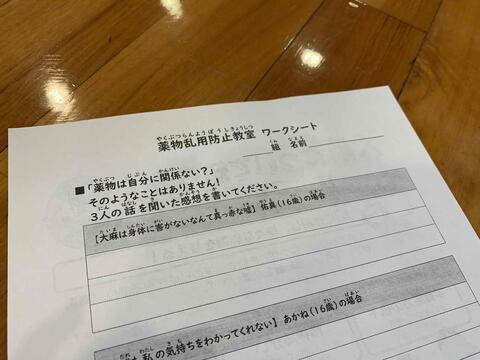 薬物乱用防止教室 ワークシート
組 名前
■「薬物は自分に関係ない？」
そのようなことはありません！
3人の話を聞いた感想を書いてください。
【大麻は身体に害がないなんて真っ赤な嘘】佑真(16歳)の場合
私の気持ちをわかってくれない】 あかね(16歳)の場合